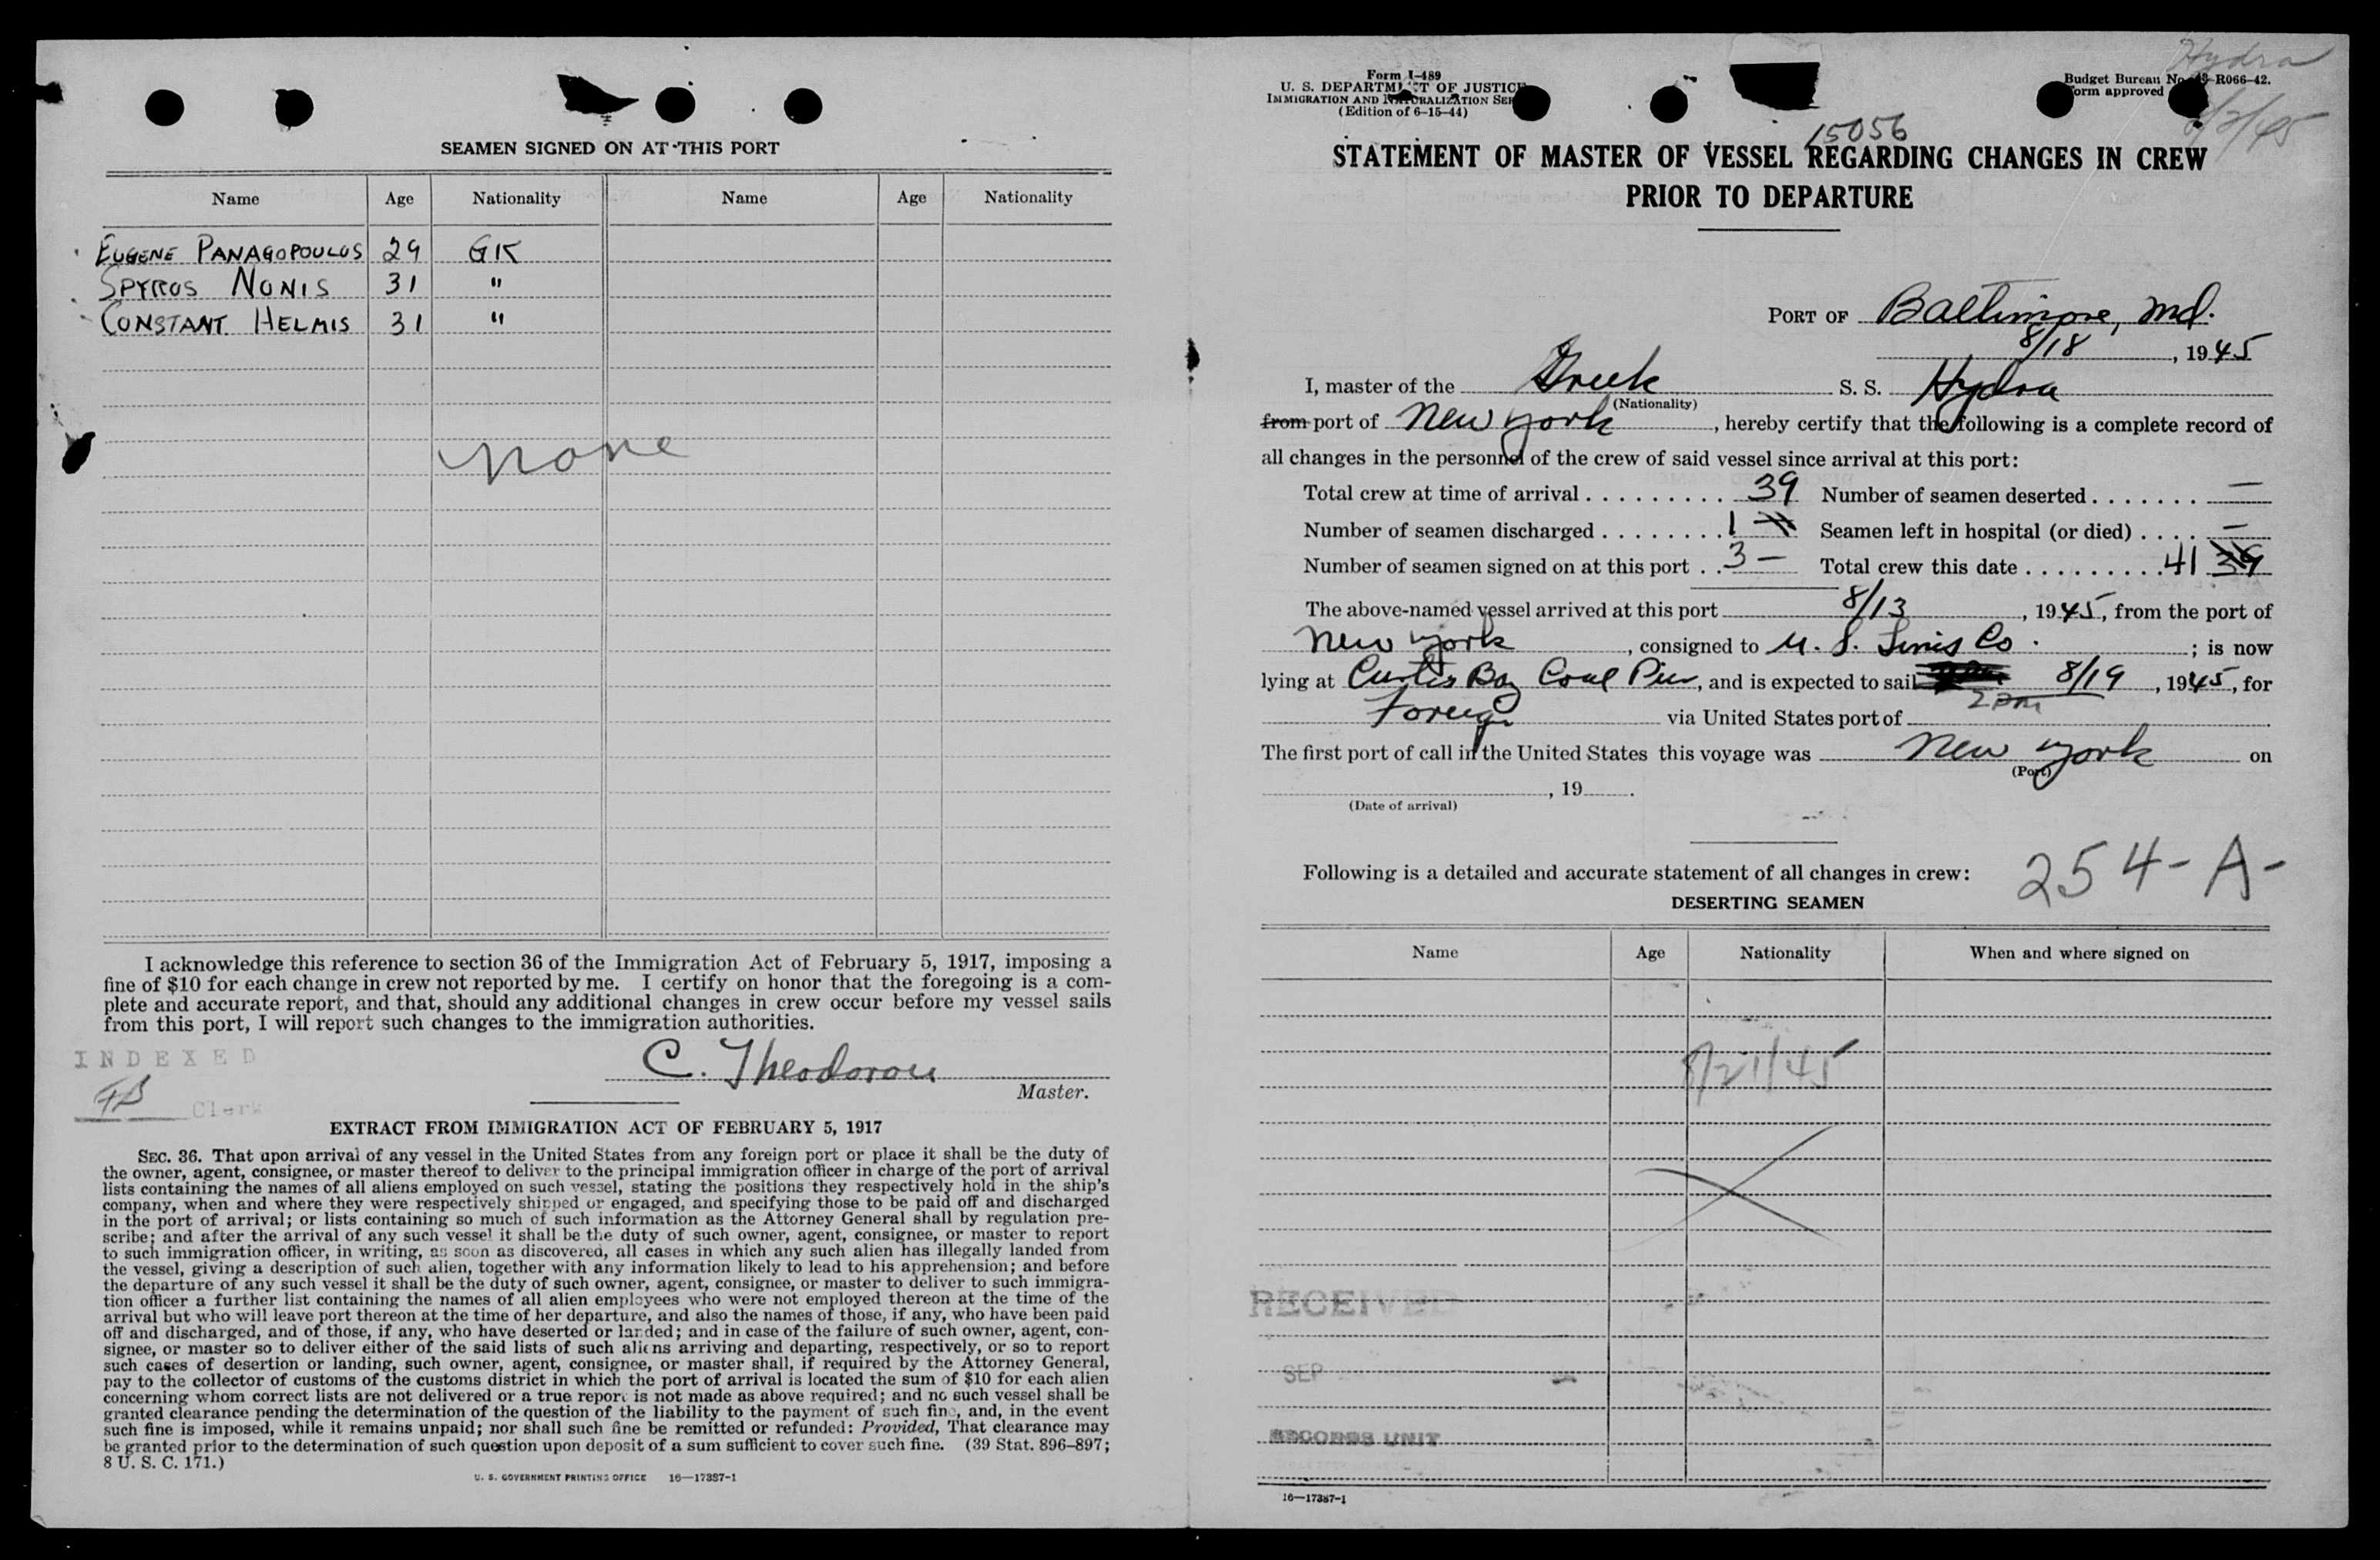 SEAMEN SIGNED ON AT THIS PORT
Name Age Nationality Name Age Nationality
EUGENE PANAGOPOULOS 29 GK
SPYROS NONIS 31 "
CONSTANT. HELMIS 31 "
none
I acknowledge this reference to section 36 of the Immigration Act of February 5, 1917, imposing a
fine of $10 for each change in crew not reported by me. I certify on honor that the foregoing is a com-
plete and accurate report, and that, should any additional changes in crew occur before my vessel sails
from this port, I will report such changes to the immigration authorities.
INDEXED
C. Theodorou
Master.
Clerk
EXTRACT FROM IMMIGRATION ACT OF FEBRUARY 5, 1917
SEC. 36. That upon arrival of any vessel in the United States from any foreign port or place it shall be the duty of
the owner, agent, consignee, or master thereof to deliver to the principal immigration officer in charge of the port of arrival
lists containing the names of all aliens employed on such vessel, stating the positions they respectively hold in the ship's
company, when and where they were respectively shipped or engaged, and specifying those to be paid off and discharged
in the port of arrival; or lists containing so much of such information as the Attorney General shall by regulation pre-
scribe; and after the arrival of any such vessel it shall be the duty of such owner, agent, consignee, or master to report
to such immigration officer, in writing, as soon as discovered, all cases in which any such alien has illegally landed from
the vessel, giving a description of such alien, together with any information likely to lead to his apprehension; and before
the departure of any such vessel it shall be the duty of such owner, agent, consignee, or master to deliver to such immigra-
tion officer a further list containing the names of all alien employees who were not employed thereon at the time of the
arrival but who will leave port thereon at the time of her departure, and also the names of those, if any, who have been paid
off and discharged, and of those, if any, who have deserted or landed; and in case of the failure of such owner, agent, con-
signee, or master so to deliver either of the said lists of such aliens arriving and departing, respectively, or so to report
such cases of desertion or landing, such owner, agent, consignee, or master shall, if required by the Attorney General,
pay to the collector of customs of the customs district in which the port of arrival is located the sum of $10 for each alien
concerning whom correct lists are not delivered or a true report is not made as above required; and no such vessel shall be
granted clearance pending the determination of the question of the liability to the payment of such fine, and, in the event
such fine is imposed, while it remains unpaid; nor shall such fine be remitted or refunded: Provided, That clearance may
be granted prior to the determination of such question upon deposit of a sum sufficient to cover such fine. (39 Stat. 896-897;
8 U. S. C. 171.)
U. S. GOVERNMENT PRINTING OFFICE 16—17387-1
Hydra
Form I-489
U. S. DEPARTMENT OF JUSTICE
IMMIGRATION AND NATURALIZATION SER
(Edition of 6-15-44)
Budget Bureau No. 43-R066-42.
orm approved
15056
STATEMENT OF MASTER OF VESSEL REGARDING CHANGES IN CREW
PRIOR TO DEPARTURE
PORT OF Baltimore, Md.
8/18, 1945
I, master of the Greek S. S. Hydra
(Nationality)
from port of New York, hereby certify that the following is a complete record of
all changes in the personnel of the crew of said vessel since arrival at this port:
Total crew at time of arrival . . . . . . . . . 39 Number of seamen deserted . . . . . . . —
Number of seamen discharged . . . . . . . . 1 Seamen left in hospital (or died) . . . . —
Number of seamen signed on at this port . . 3 — Total crew this date . . . . . . . . . 41 39
The above-named vessel arrived at this port 8/13, 1945, from the port of
New York, consigned to U. S. Lines Co.; is now
lying at Curtis Bay Coal Pier, and is expected to sail 8/19, 1945, for
2 PM
Foreign via United States port of
The first port of call in the United States this voyage was New York on
(Port)
, 19 .
(Date of arrival)
254-A-
Following is a detailed and accurate statement of all changes in crew:
DESERTING SEAMEN
Name Age Nationality When and where signed on
8/21/45
RECEIVED
SEP
RECORDS UNIT
16—17387-1